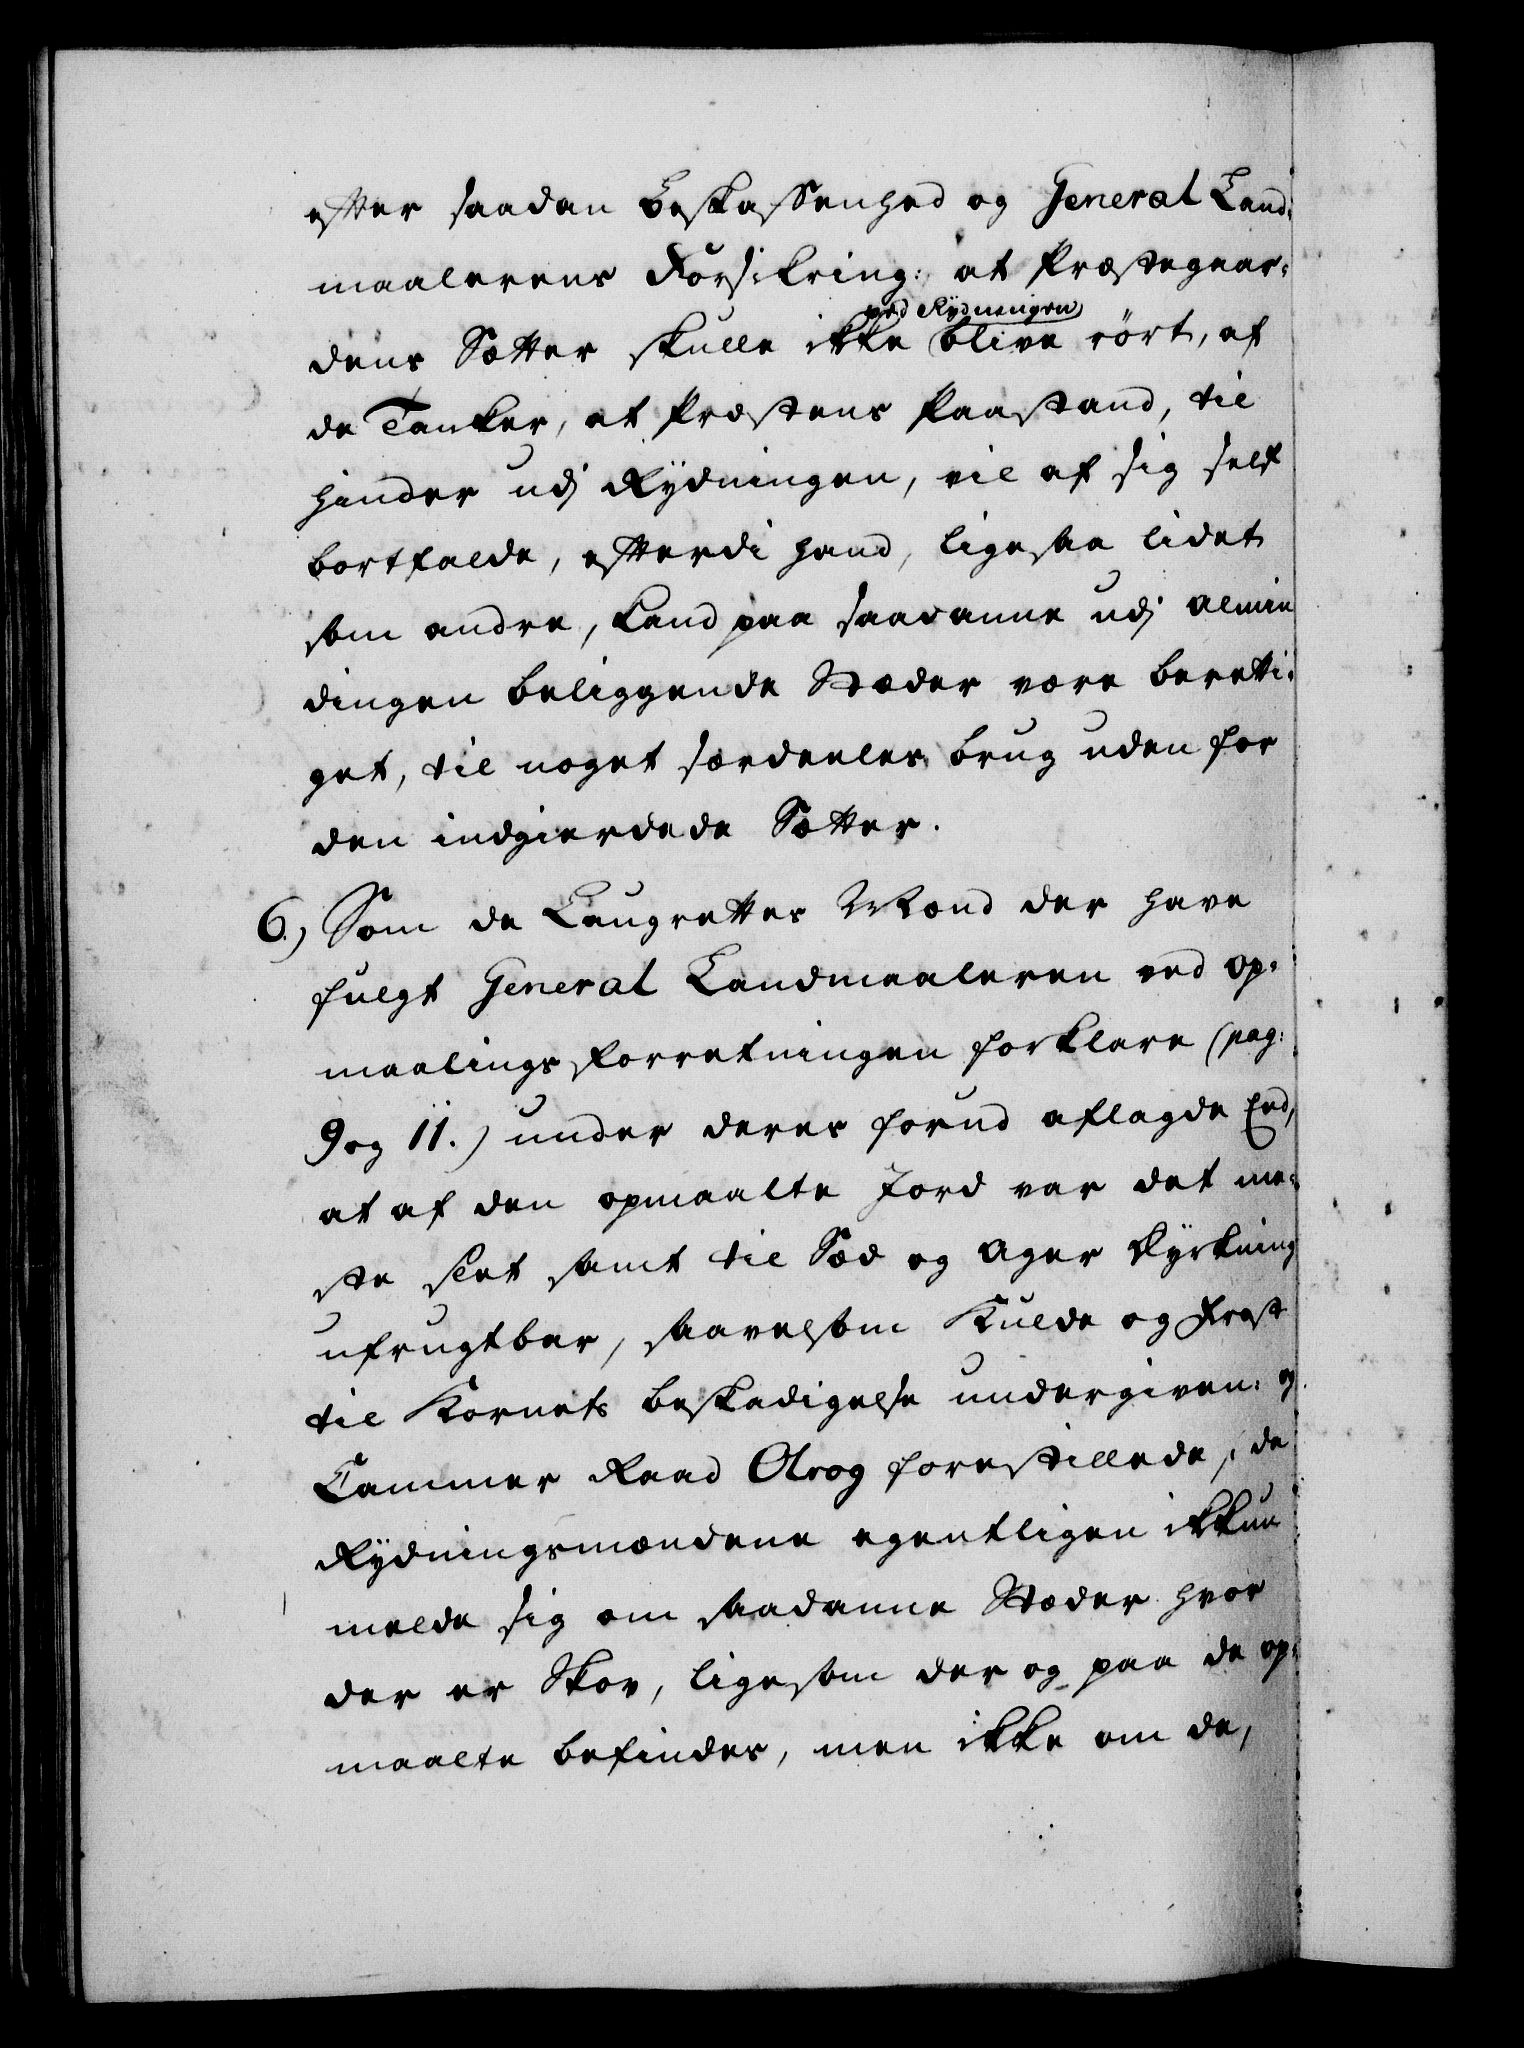 efter saadan Beskaffenhed og General Land-
maalerens Forsikring: at Præstegaar-
ved Rydningen
dens Sætter skulle ikke blive rört, af
de Tanker, at Præstens Paastand, til
hinder udj Rydningen, vil af sig self
bortfalde, efterdi hand, ligesaa lidet
som andre, kand paa saadanne udj Almin
dingen beliggende Stæder være beretti-
get, til noget særdeeles brug uden for
den indgierdede Sætter.
6.) Som de Laugrettes Mænd der have
fulgt General Landmaaleren ved Op-
maalings Forretningen forklare (pag:
9 og 11.) under deres forud aflagde Eed,
at af den opmaalte Jord var det me-
ste slet samt til Sæd og Ager Dyrkning
ufrugtbar, saavelsom Kulde og Frost
til Kornets beskadigelse undergiven: og
Cammer Raad Olrog forestillede, de
Rydningsmændene egentligen ikkun
melde sig om saadanne Stæder hvor
der er Skov, ligesom der og paa de op-
maalte befindes, men ikke om de,